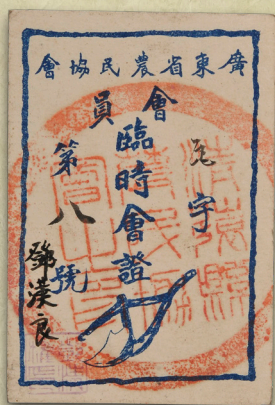 廣東省農民協會
會員
臨時會證
字
第八號
鄧漢良